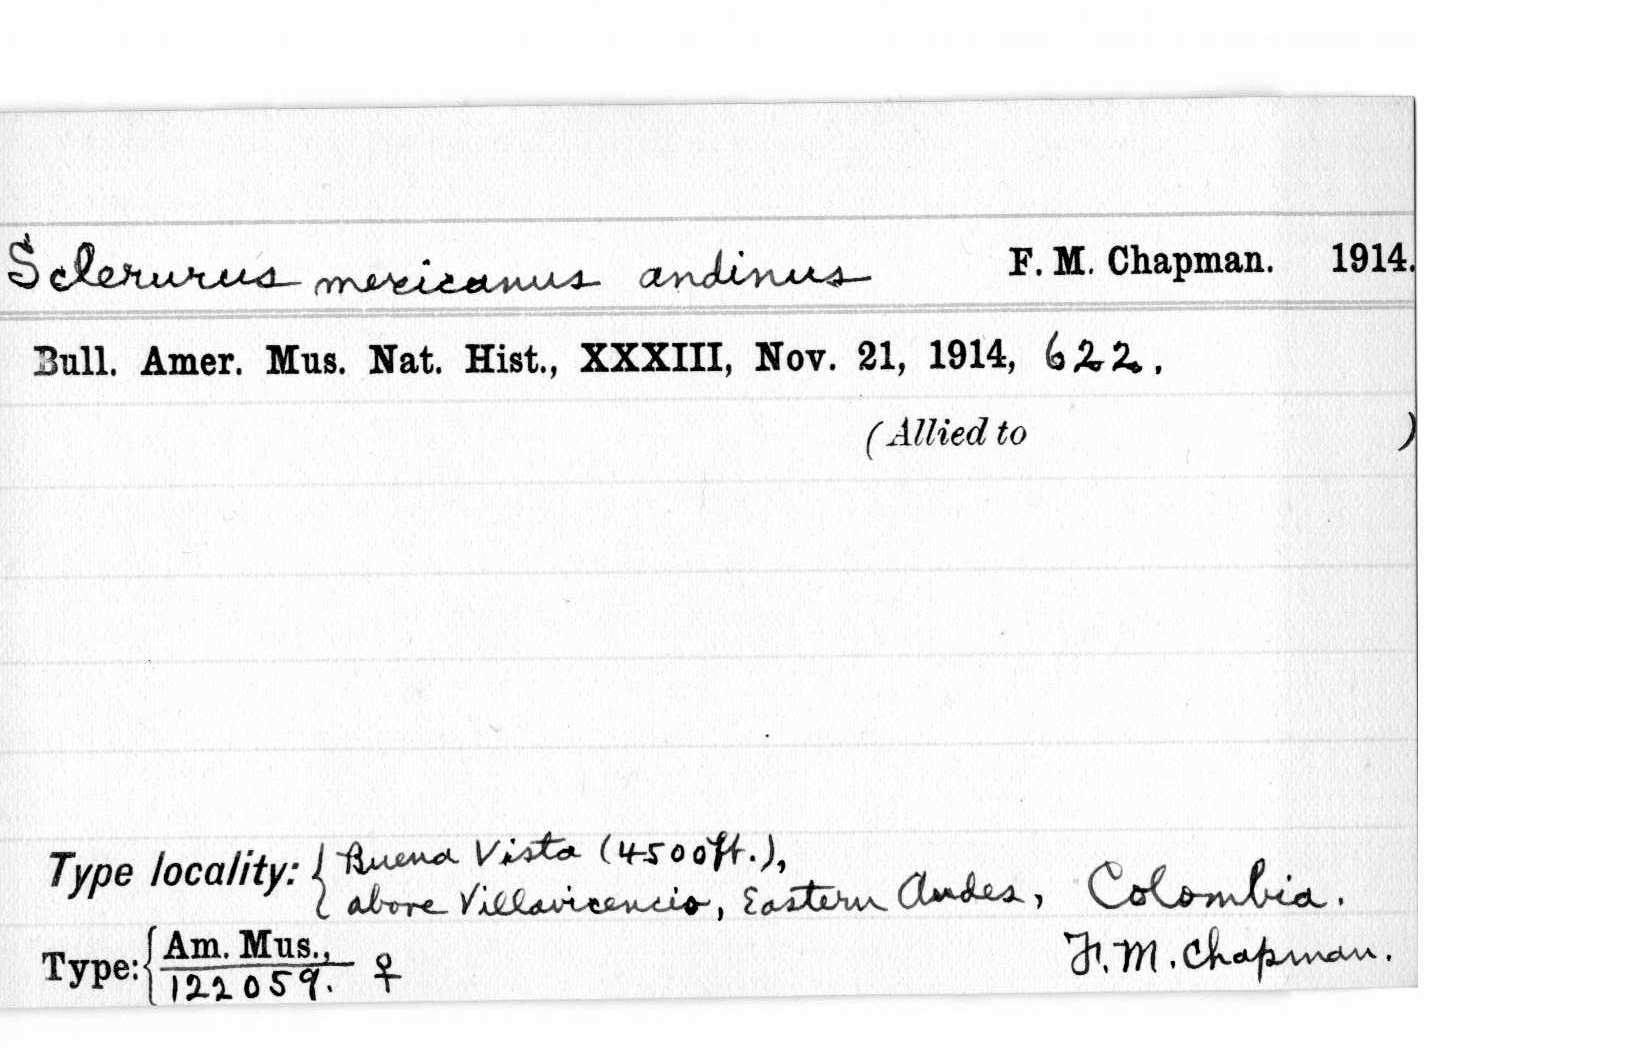 Sclerurus mexicanus andinus F. M. Chapman. 1914.
Bull. Amer. Mus. Nat. Hist., XXXIII, Nov. 21, 1914, 622.
(Allied to )
Type locality: { Buena Vista (4500 ft.),
above Villavicencio, Eastern Andes, Colombia.
Type: { Am. Mus., F. M. Chapman.
122059. ♀